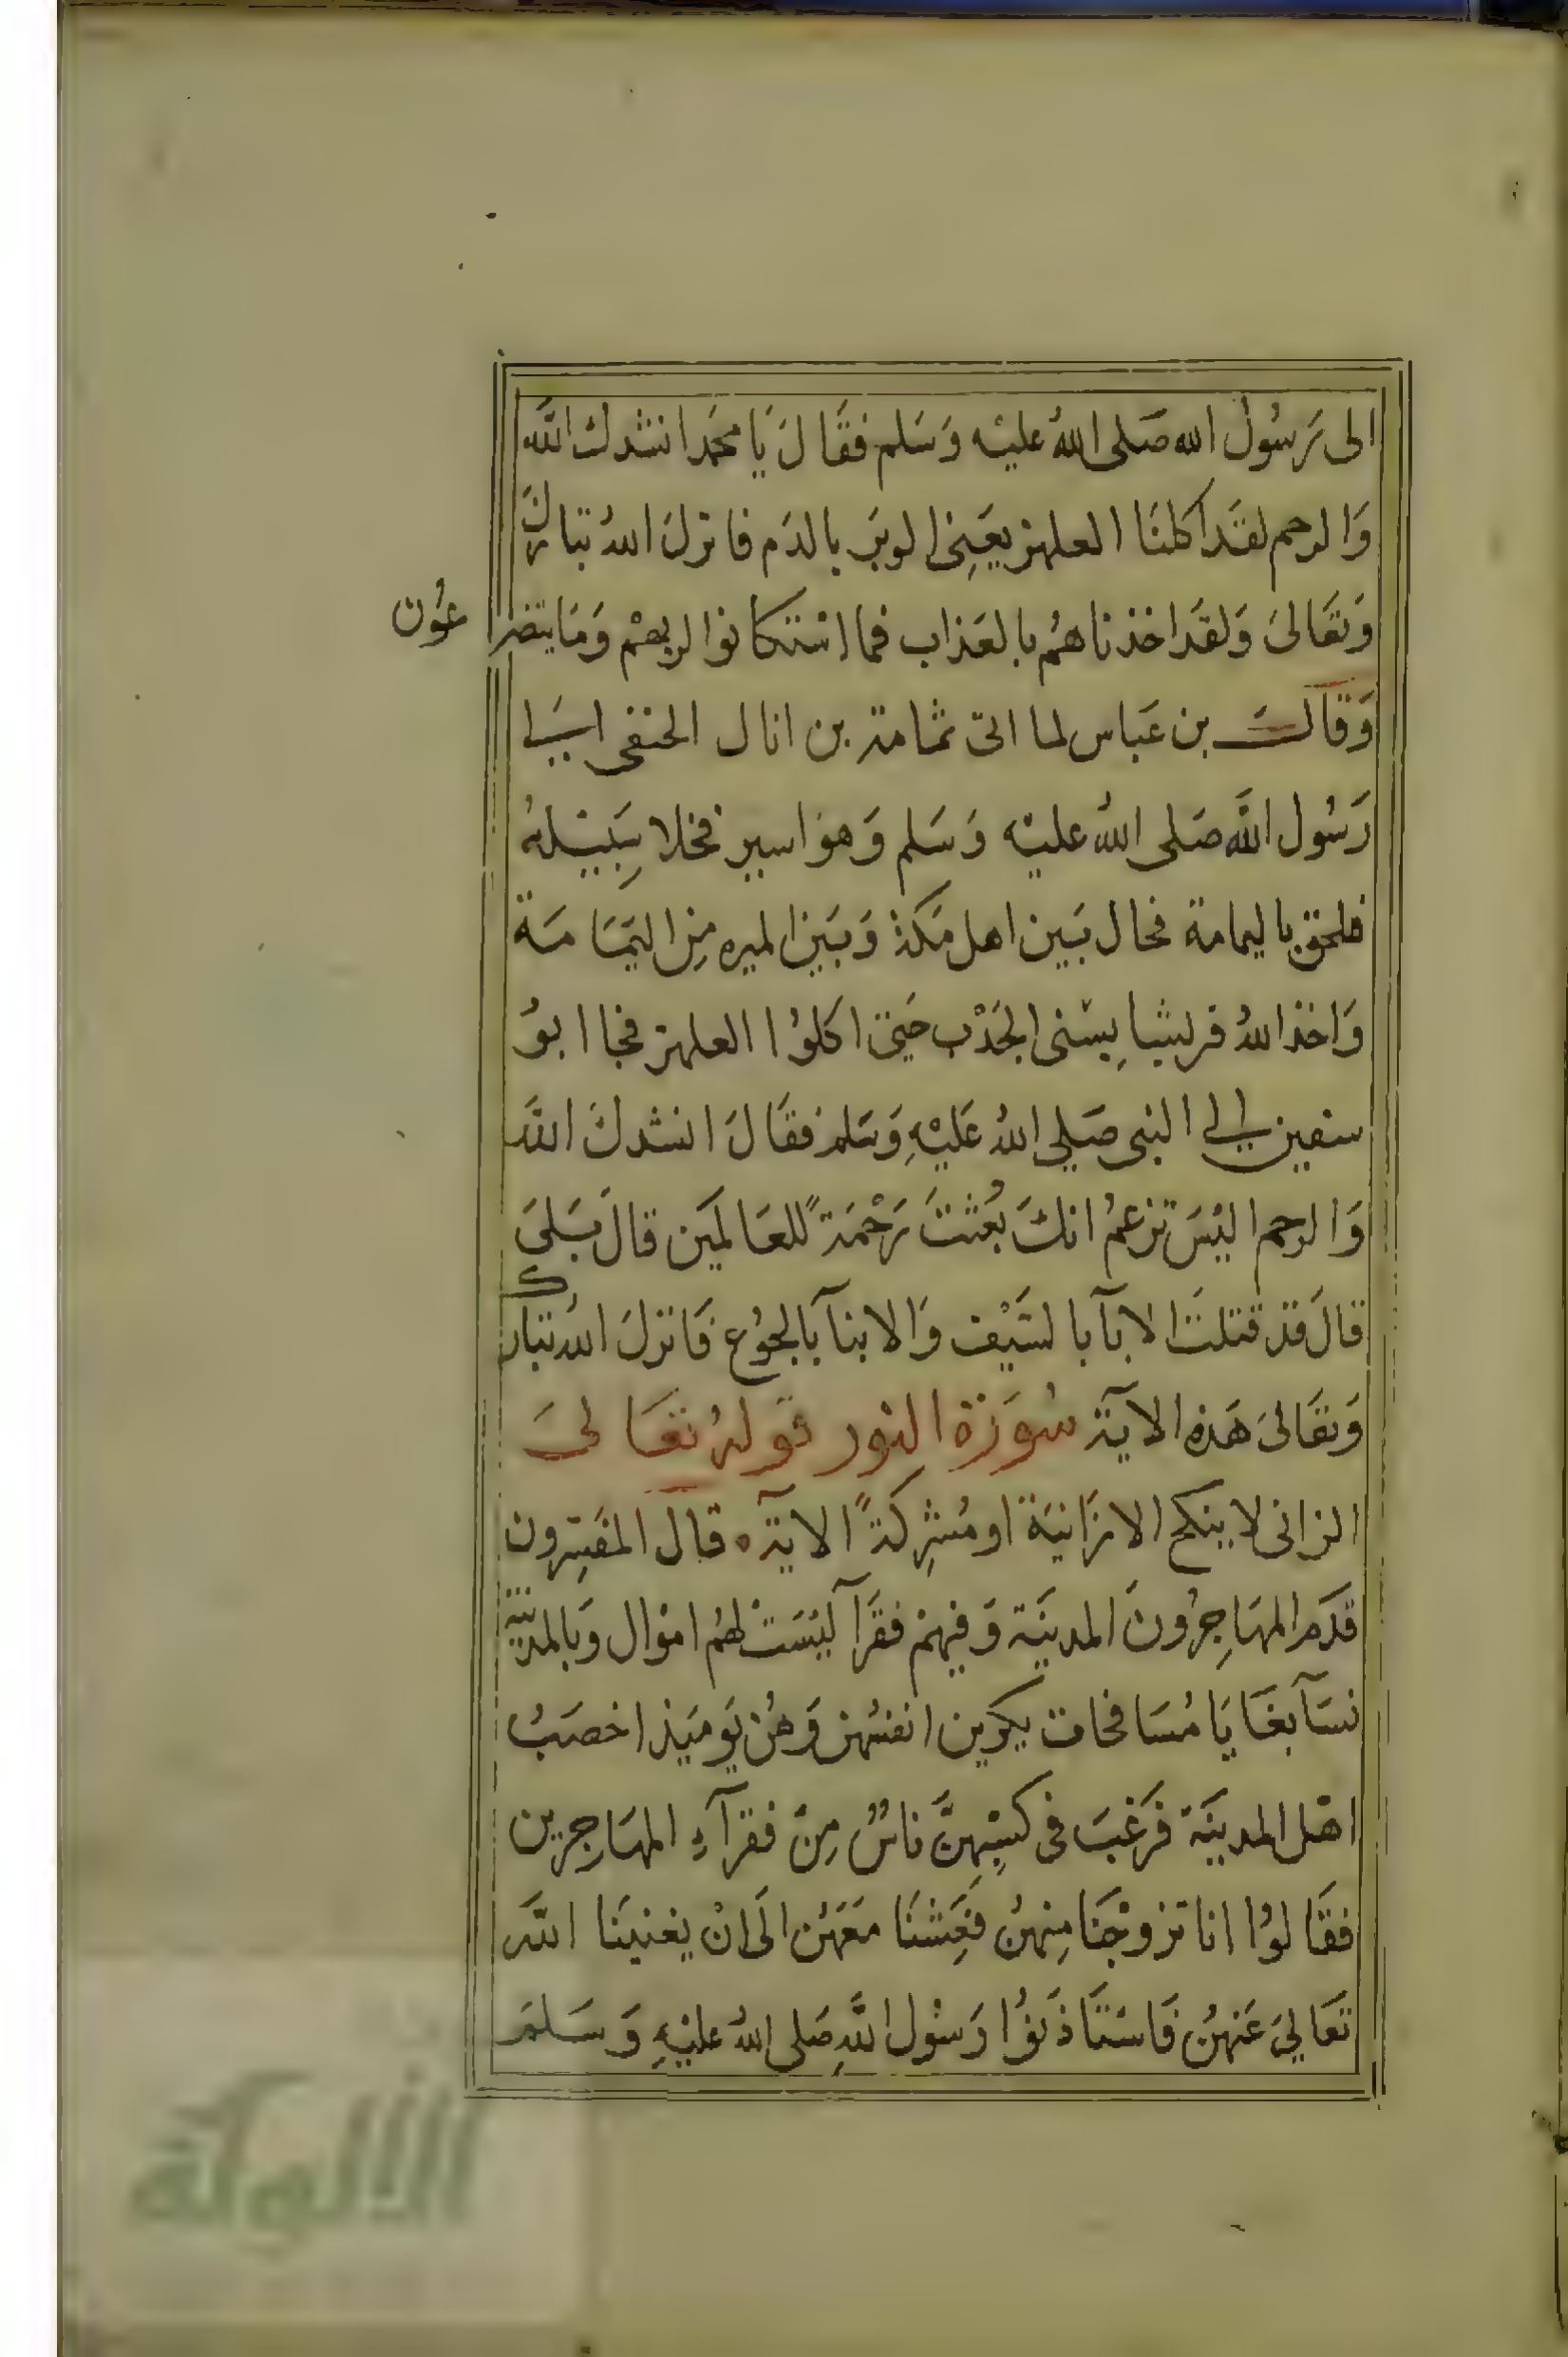 الى رَسُول الله صَلى اللهُ عليْه وَسَلم فقَالَ يَا محَمد انشدك اللهَ
وَالرحم لقَد اكلنَا العلهز يعَنِى الوبَر بالدَم فانزلَ اللهُ تبارَكَ
وَتعَالىَ وَلقَد اخذناهُم بالعَذاب فما استكانوا لربهمْ وَمَا يتضرعُون
وَقالَ بن عَباس لما اتى ثمامة بن اثال الحنفى اسيرا
رَسُول اللهَ صَلى اللهُ عليْه وَسَلم وَهوَ اسير فخلا سَبِيْلهُ
فلحق باليمامة فحال بَين اهل مَكة وَبَين الميره مِن اليَمَامَة
وَاخذ اللهُ قريشا بِسْنى الجَدْب حَتى اكلوُا العلهز فجا ابوُ
سفين الى النبى صَلى اللهُ عَليْهِ وَسَلم فقَالَ انشدكَ اللهَ
وَالرحم اليْسَ تزعمُ انكَ بُعثتَ رَحْمَةً للعَالمَين قالَ بَلىَ
قالَ قد قتلتَ الابآ بالسَيْف وَالابنآ بالجوُع فَانزلَ اللهُ تبارك
وَتعَالىَ هَذه الآية سُورَة النور قولهُ تعَالىَ
الزانى لا ينكح الا زَانيَة او مُشرِكةً الآية قال المفَسِرون
قدَم المهَاجِرُونَ المدينَة وَفيهمْ فقرَآ ليْسَتْ لهُم امْوَال وَبالمدينَة
نسَآ بغَايَا مُسَافحات يكرين انفسُهن وَهُن يَومَيذ اخصَبُ
اهْل المدينَة فَرَغبَ فى كسْبِهِنَّ ناسٌ مِنْ فقرآءِ المهَاجِرين
فقَالوُا انا تزوجْنا مِنهنُ فعِشنَا مَعَهُن الَى انْ يغنينَا اللهَ
تعَالىَ عَنهنُ فَاستَاذَنوُا رَسُول اللهِ صَلى اللهُ عليْهِ وَسَلمَ
الألوكة